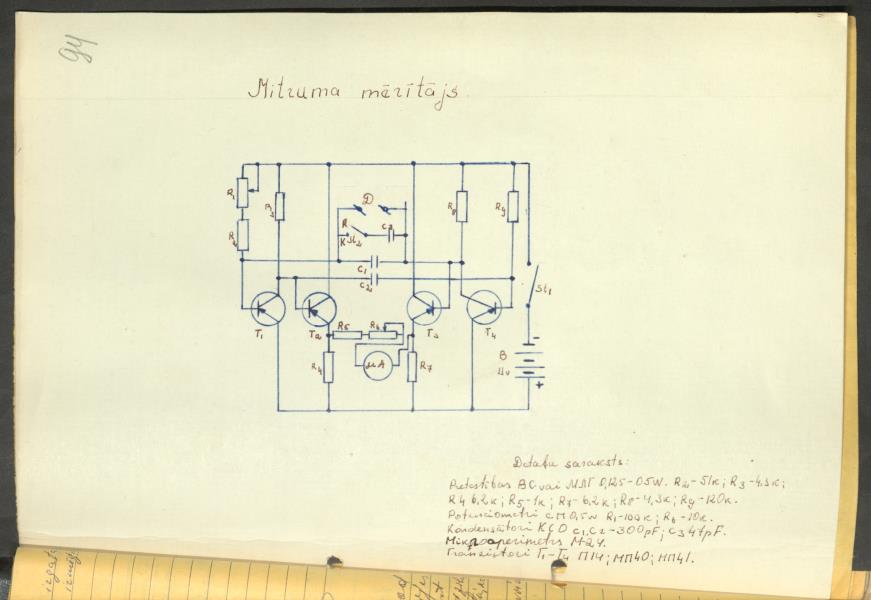 94
Mitruma mērītājs
R1
R2
R3
D
K
St2
C3
R8
R9
C1
C2
St1
T1
T2
R5
R6
T3
T4
R4
μA
R7
B
-
+
Detaļu saraksts:
Pretestības BC vai МЛТ 0,125-0,5W. R2-51k; R3-4,3k;
R4 6,2k; R5-1k; R7-6,2k; R8-4,3k; R9-120k.
Potenciometri СП 0,5w R1-100k; R6-10k.
Kondensātori KCO C1,C2-300pF; C3 47pF.
Mikroampermetrs M24.
Tranzistori T1-T4 П14; МП40; МП41.